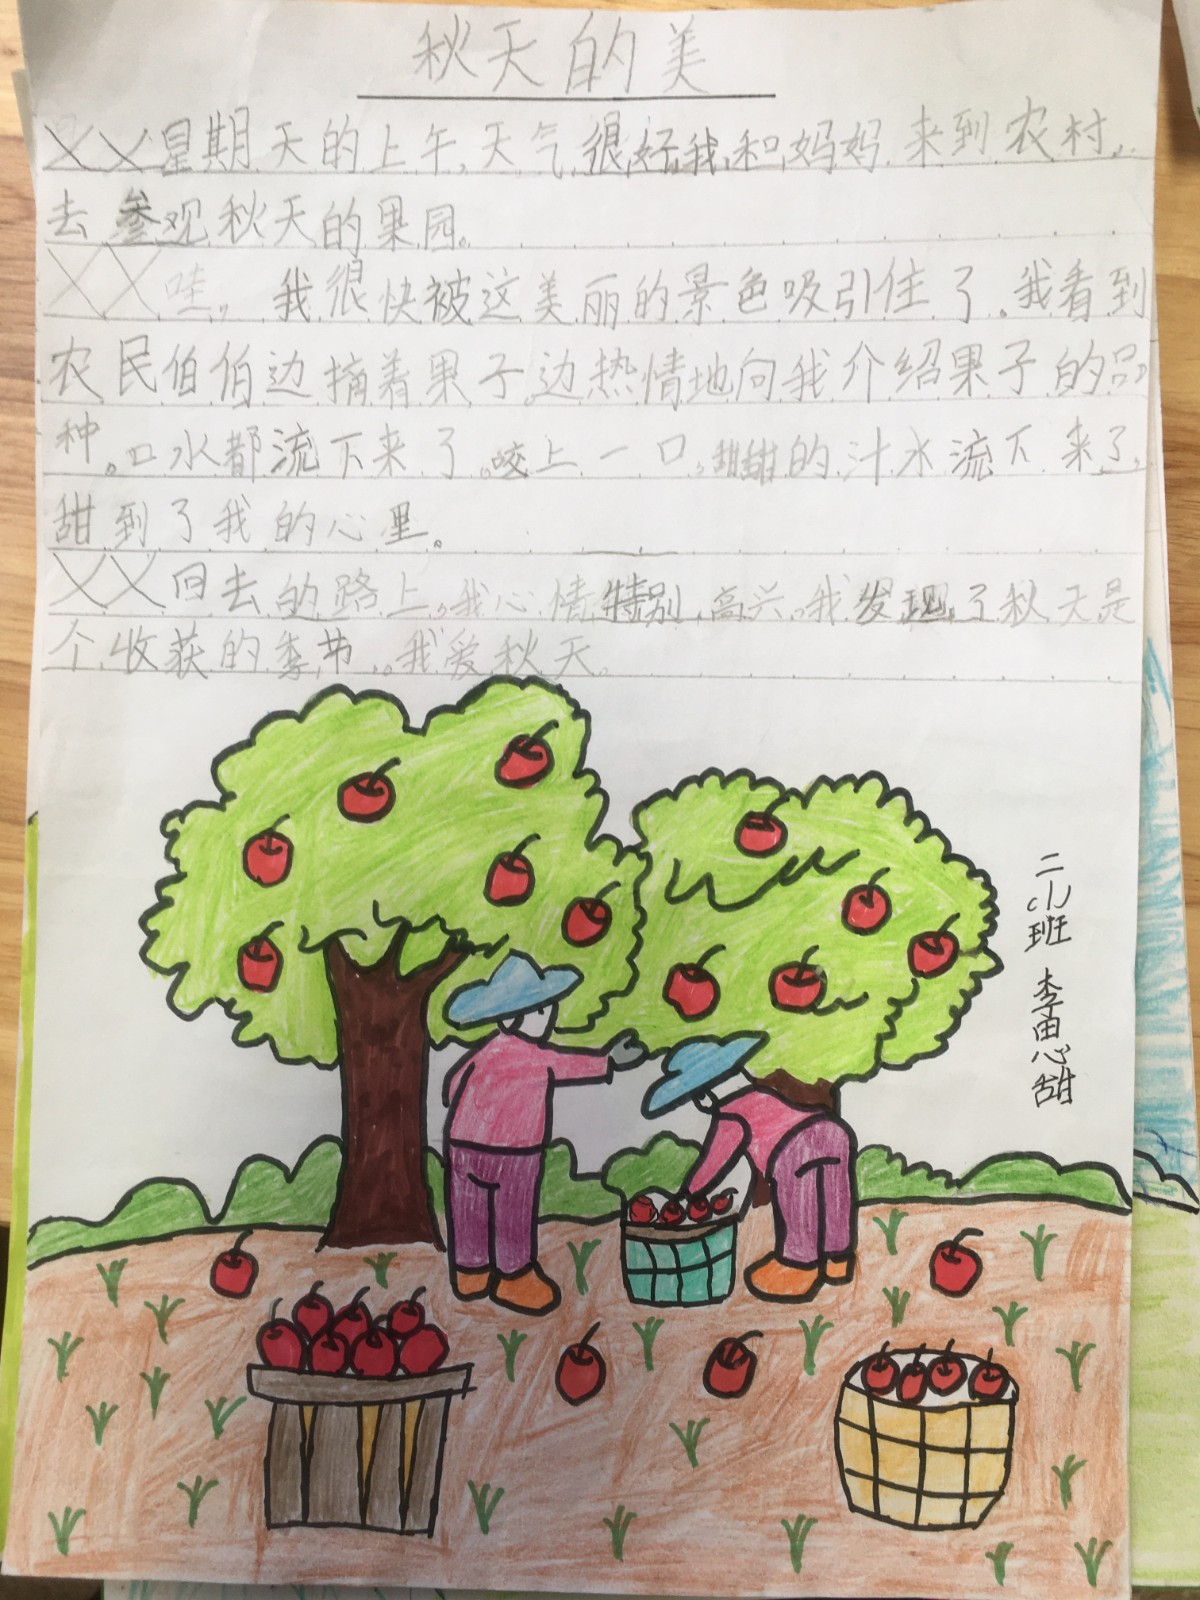 秋天的美
╳╳星期天的上午,天气很好,我和妈妈来到农村,
去参观秋天的果园。
╳╳哇,我很快被这美丽的景色吸引住了。我看到
农民伯伯边摘着果子,边热情地向我介绍果子的品
种。口水都流下来了。咬上一口,甜甜的汁水流下来了,
甜到了我的心里。
╳╳回去的路上,我心情特别高兴。我发现了秋天是
个收获的季节。我爱秋天。
二小班 李思甜